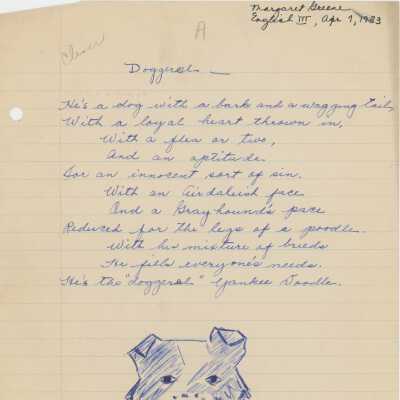 Margaret Greene
English III, Apr 7, 1933
Clever
A
Doggerel —
He's a dog with a bark and a wagging tail,
With a loyal heart thrown in,
With a flea or two,
And an aptitude
For an innocent sort of sin.
With an Airdaleish face
And a Grayhound's pace
Reduced for the legs of a poodle.
With his mixture of breeds
He fills everyone's needs.
He's the "doggerel" Yankee Doodle.